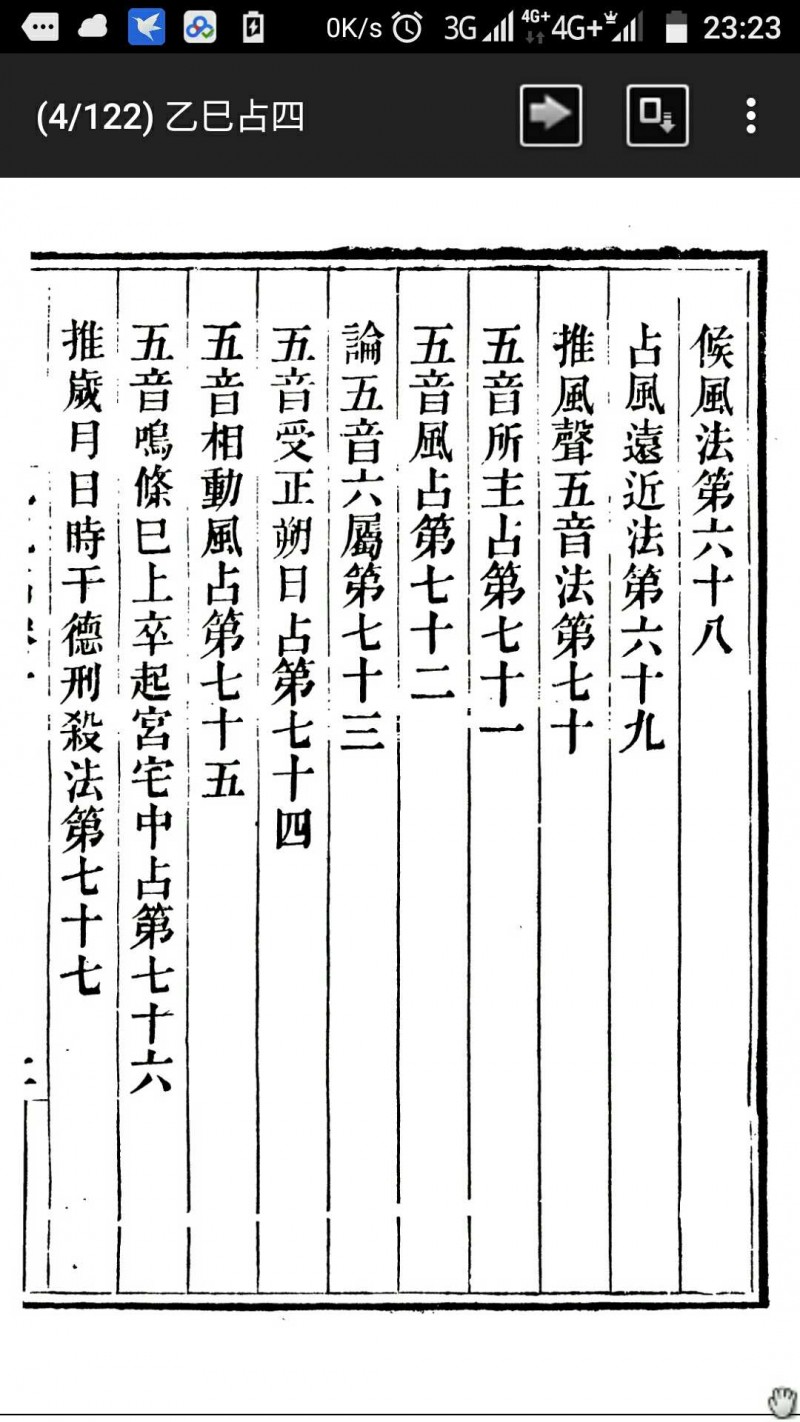 0K/s 3G 4G+ 4G+ 23:23
(4/122) 乙巳占四
候風法第六十八
占風遠近法第六十九
推風聲五音法第七十
五音所主占第七十一
五音風占第七十二
論五音六屬第七十三
五音受正朔日占第七十四
五音相動風占第七十五
五音鳴條巳上卒起宮宅中占第七十六
推歲月日時干德刑殺法第七十七